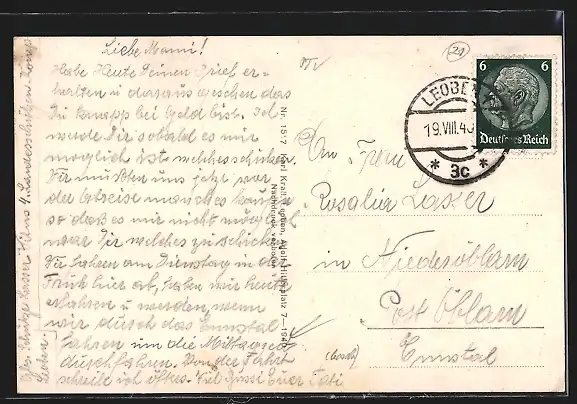 Liebe Mami!
Habe Heute Deinen Brief er-
halten u daraus gesehen das
Du knapp bei Geld bist. Ich
werde Dir sobald es mir
möglich ist welches schicken.
Wir mußten uns jetzt vor
der Abreise manches kaufen
so daß es mir nicht möglich
war Dir welches zu schicken
Wir fahren am Dienstag in der
Früh hier ab, haben wir heute
erfahren u werden, wenn
wir durch das Ennstal
fahren um die Mittagszeit
durchfahren. Von der Fahrt
schreibe ich öfters. Viel Bussi Euer Tati
Landesschützen Komp.
Leoben
Nr. 1517 Karl Krall, Leoben, Adolf-Hitler-Platz 7—1940
Nachdruck verboten
29
6 6
Deutsches Reich
LEOBEN
19.VIII.40
* 3c *
An Frau
Rosalia Lasser
in Niederöblarn
Post Öblarn
Ennstal